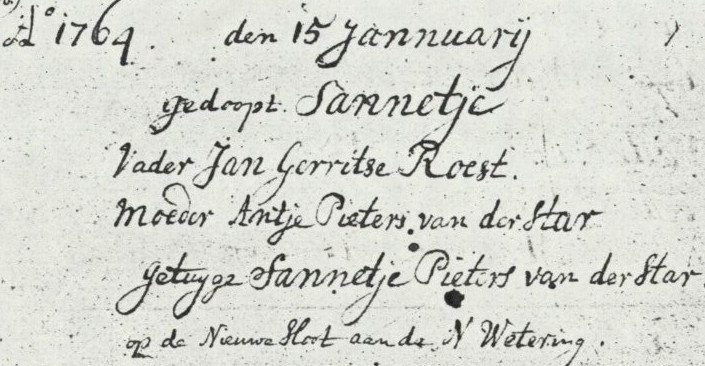 A° 1764. den 15 Jannuarij
gedoopt Sannetje
Vader Jan Gerritse Roest.
Moeder Antje Pieters van der Star
getuyge Sannetje Pieters van der Star
op de Nieuwe Sloot aan de N Wetering.